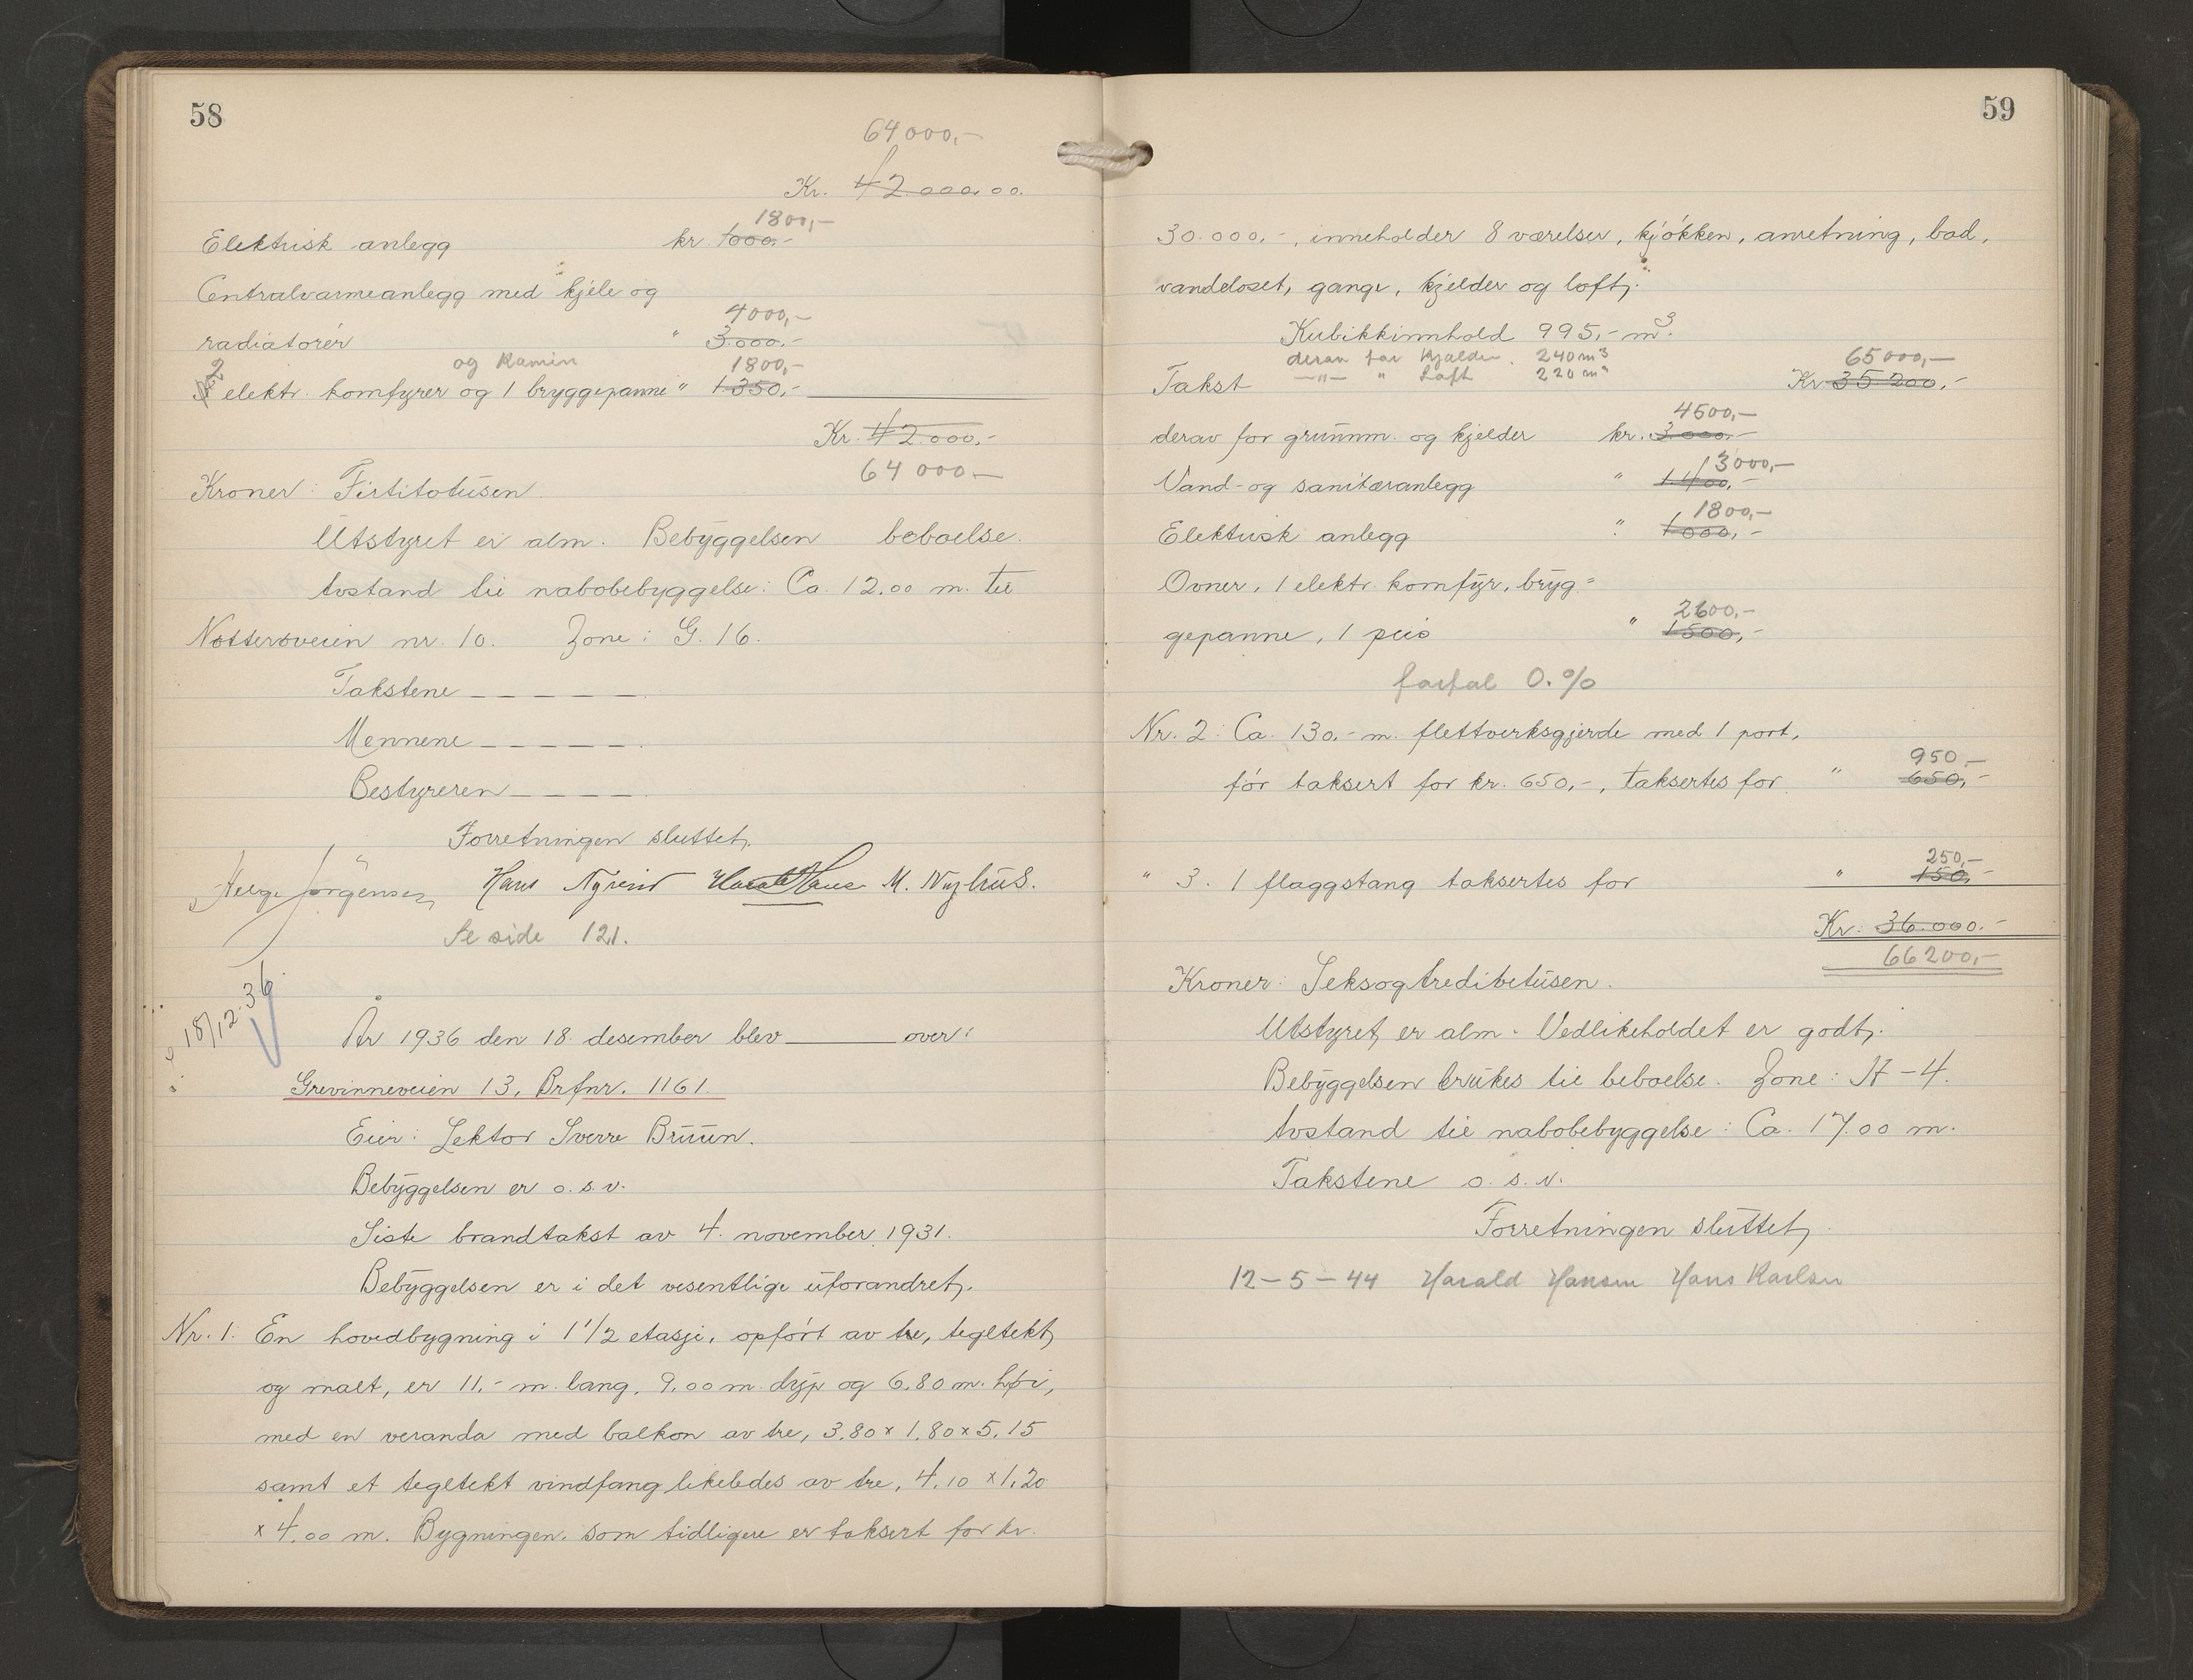 58
64000,-
Kr. 42.000.00.
1800,-
Elektrisk anlegg kr. 1000.-
Centralvarmeanlegg med kjele og
4000,-
radiatorer " 3.000.-
2 og Kamin 1800,-
elektr. komfyrer og 1 bryggepanne " 1.350,-
Kr. 42.000,-
64 000-
Kroner: Firtitotusen
Utstyret er alm. Bebyggelsen beboelse.
Avstand til nabobebyggelse: Ca. 12.00 m. til
Nøtterøveien nr. 10. Zone: G. 16.
Takstene _ _ _ _ _
Mennene _ _ _ _ _
Bestyreren _ _ _ _ .
Forretningen sluttet.
Helge Jørgensen Hans M. Nyhus.
Se side 121.
18/12.36
År 1936 den 18. desember blev ______ over:
Grevinneveien 13, Brfnr. 1161.
Eier: Lektor Sverre Bruun.
Bebyggelsen er o.s.v.
Siste brandtakst av 4. november 1931.
Bebyggelsen er i det vesentlige uforandret.
Nr. 1. En hovedbygning i 1 1/2 etasje, opført av tre, tegltekt
og malt, er 11,- m. lang, 9.00 m. dyp og 6.80 m. høi,
med en veranda med balkon av tre, 3.80 x 1.80 x 5.15
samt et tegltekt vindfang likeledes av tre, 4.10 x 1.20
x 4.00 m. Bygningen, som tidligere er taksert for kr.
59
30.000.-, inneholder 8 værelser, kjøkken, anretning, bad,
vandcloset, gange, kjelder og loft.
Kubikkinnhold 995,- m³.
derav for Kjelder. 240 m³ 65000,-
Takst -"- " Loft 220 m³ Kr 35 200,-
4500,-
derav for grunnm. og kjelder kr. 3.000.-
3000,-
Vand- og sanitæranlegg " 1400,-
1800,-
Elektrisk anlegg " 1000,-
Ovner, 1 elektr. komfyr, bryg=
2600,-
gepanne, 1 peis " 1500,-
forfal 0.%
Nr. 2: Ca. 130,- m. flettverksgjerde med 1 port,
950,-
før taksert for kr. 650,-, taksertes for " 650,-
250,-
" 3. 1 flaggstang taksertes for " 150,-
Kr. 36.000.-
66200,-
Kroner: Seksogtredivetusen.
Utstyret er alm. Vedlikeholdet er godt.
Bebyggelsen brukes til beboelse. Zone: H-4.
Avstand til nabobebyggelse: Ca. 17.00 m.
Takstene o. s. v.
Forretningen sluttet.
12-5-44 Harald Hansen Hans Karlsen